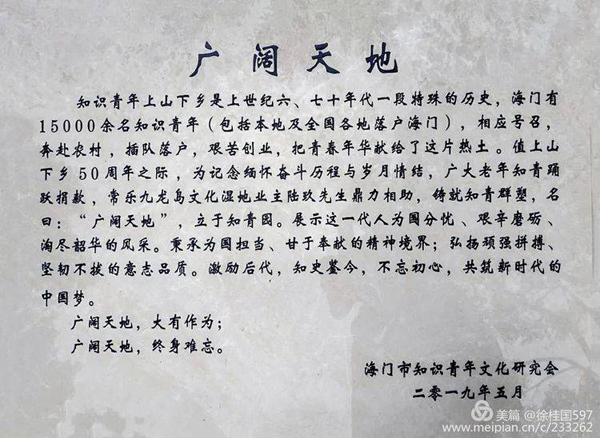 广阔天地
知识青年上山下乡是上世纪六、七十年代一段特殊的历史，海门有
15000余名知识青年（包括本地及全国各地落户海门），相应号召，
奔赴农村，插队落户，艰苦创业，把青春年华献给了这片热土。值上山
下乡50周年之际，为记念缅怀奋斗历程与岁月情结，广大老年知青踊
跃捐款，常乐九龙岛文化湿地业主陆玖先生鼎力相助，铸就知青群塑，名
曰：“广阔天地”，立于知青园。展示这一代人为国分忧、艰辛磨砺、
淘尽韶华的风采。秉承为国担当、甘于奉献的精神境界；弘扬顽强拼搏、
坚韧不拔的意志品质。激励后代，知史鉴今，不忘初心，共筑新时代的
中国梦。
广阔天地，大有作为；
广阔天地，终身难忘。
海门市知识青年文化研究会
二零一九年五月
美篇 @徐桂国597
www.meipian.cn/c/233262